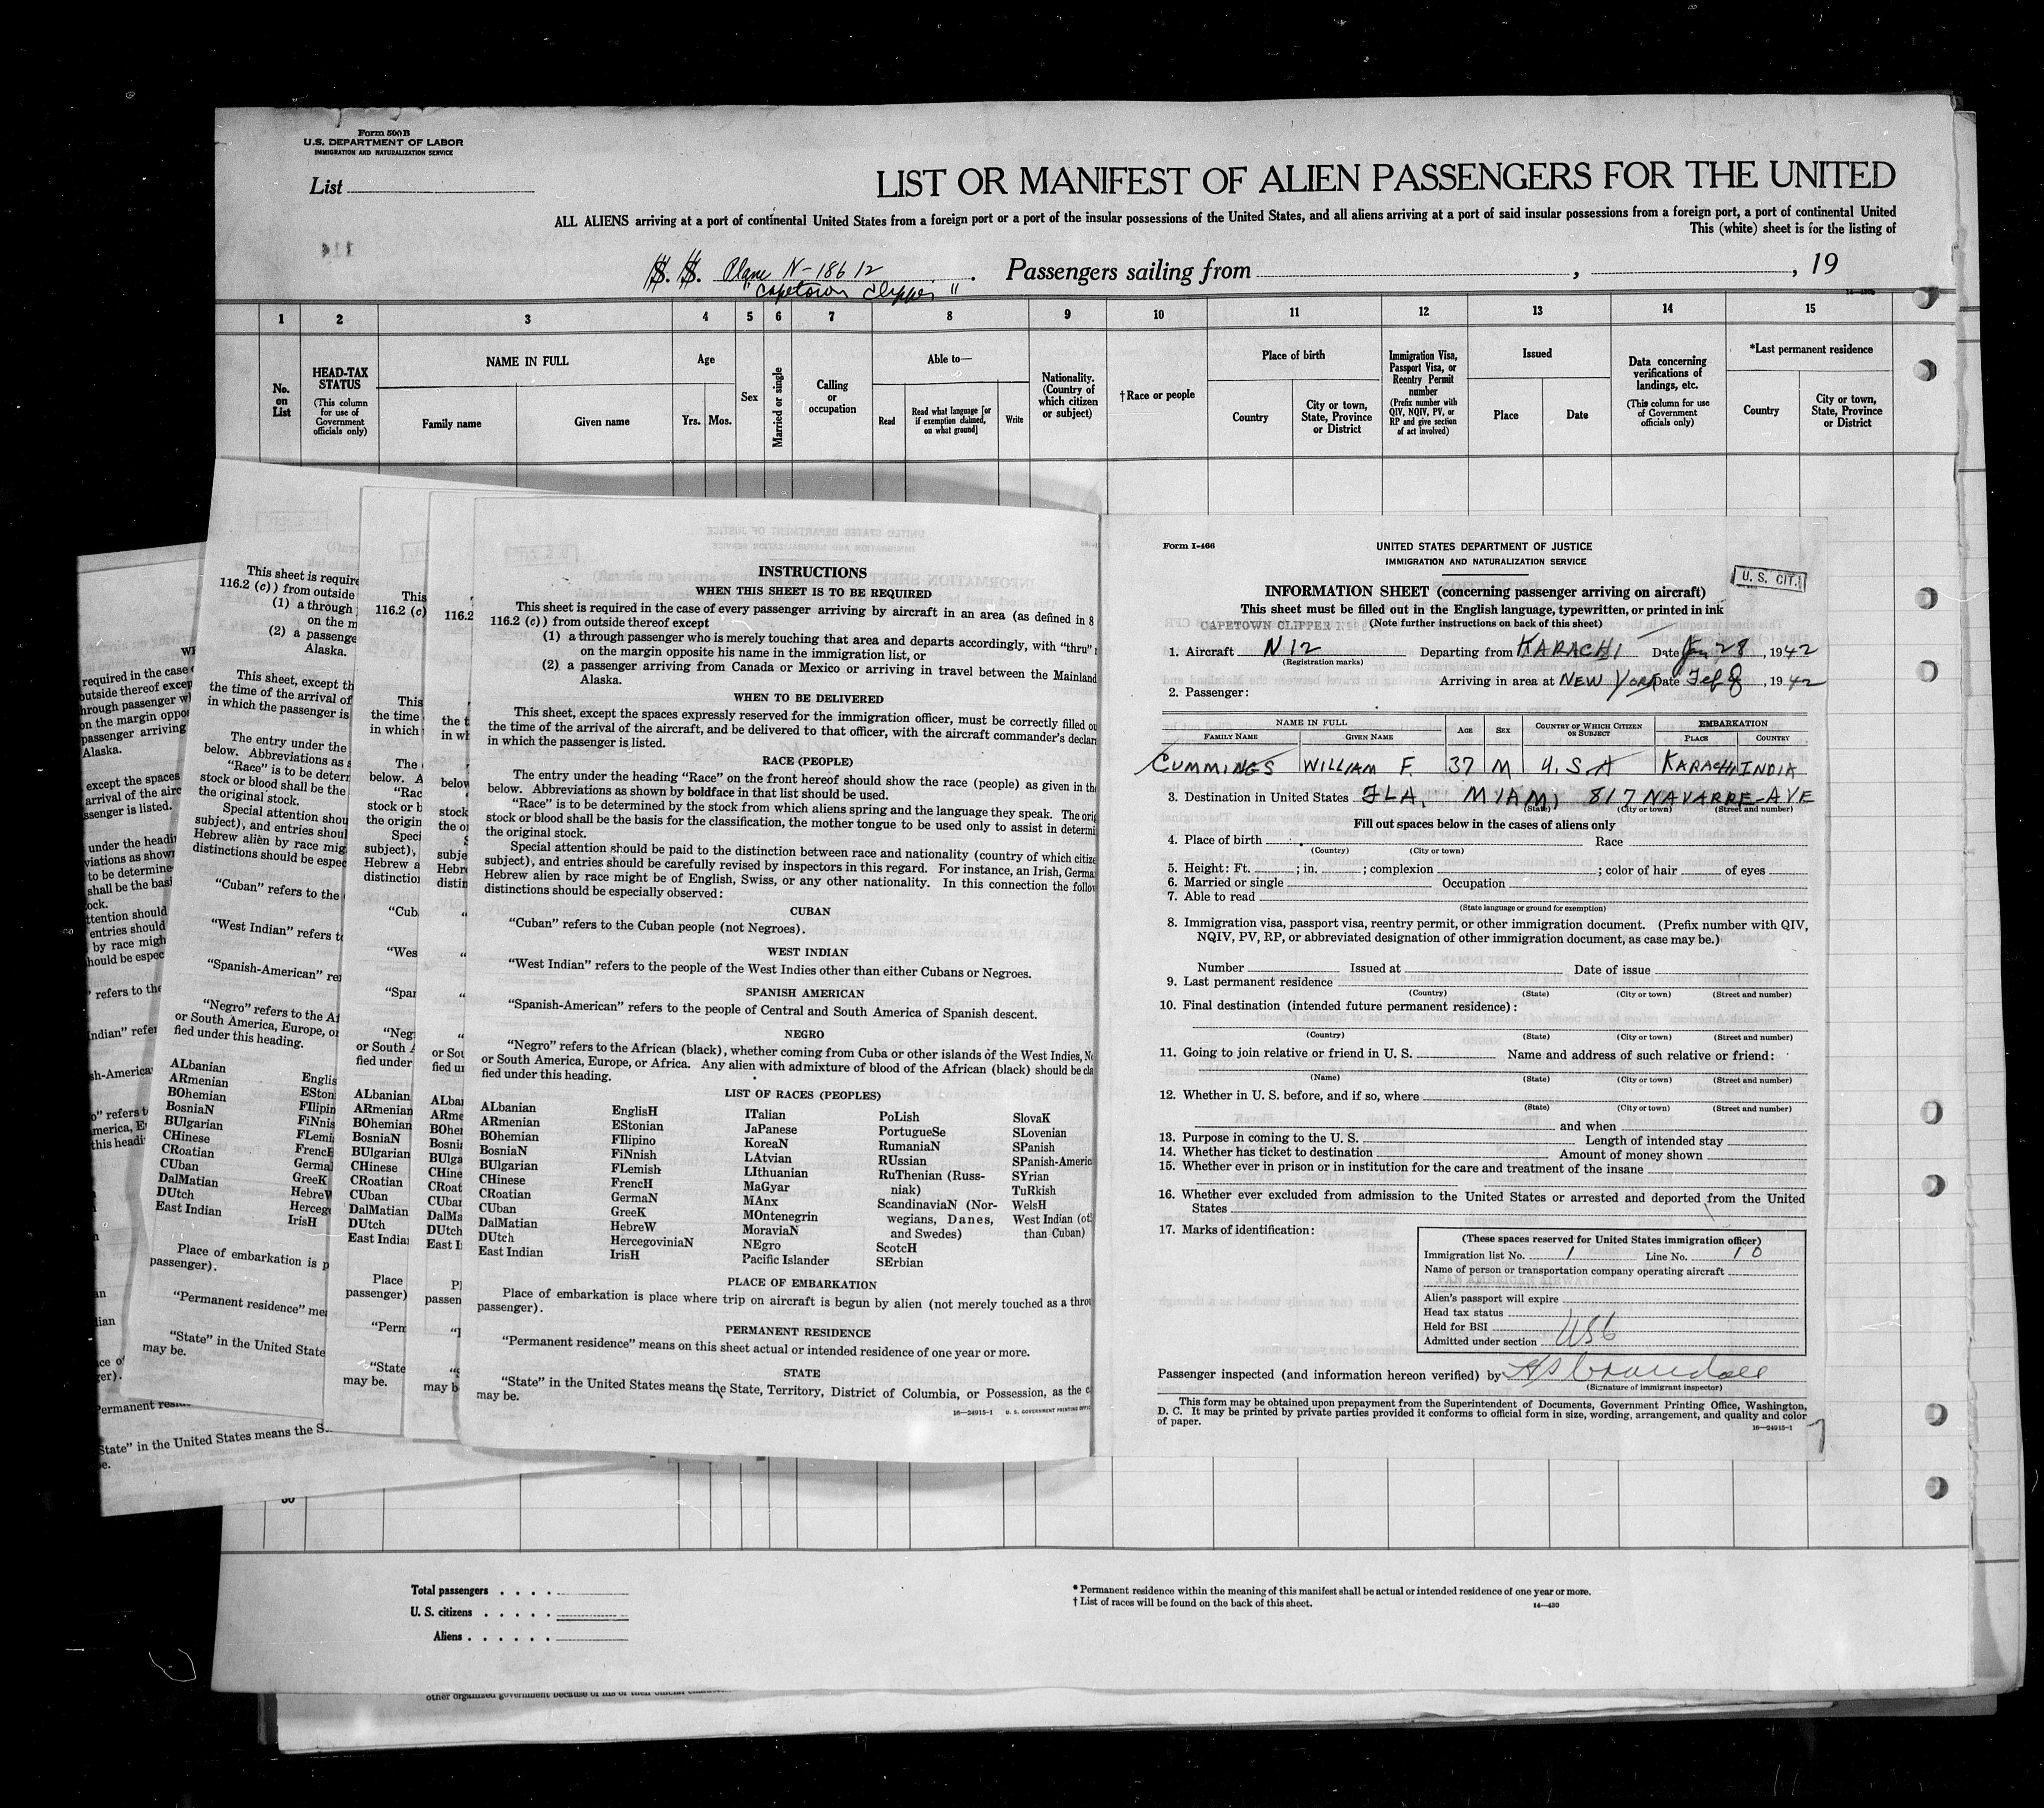 Form 500B
U.S. DEPARTMENT OF LABOR
IMMIGRATION AND NATURALIZATION SERVICE
List
LIST OR MANIFEST OF ALIEN PASSENGERS FOR THE UNITED
ALL ALIENS arriving at a port of continental United States from a foreign port or a port of the insular possessions of the United States, and all aliens arriving at a port of said insular possessions from a foreign port, a port of continental United
This (white) sheet is for the listing of
S. S. Plane N-18612 . Passengers sailing from , , 19
"Capetown Clipper"
1 2 3 4 5 6 7 8 9 10 11 12 13 14 15
No. on List
HEAD-TAX STATUS
(This column for use of Government officials only)
NAME IN FULL
Family name
Given name
Age
Yrs. Mos.
Sex
Married or single
Calling or occupation
Able to—
Read
Read what language [or if exemption claimed, on what ground]
Write
Nationality. (Country of which citizen or subject)
†Race or people
Place of birth
Country
City or town, State, Province or District
Immigration Visa, Passport Visa, or Reentry Permit number
(Prefix number with QIV, NQIV, PV, or RP and give section of act involved)
Issued
Place
Date
Data concerning verifications of landings, etc.
(This column for use of Government officials only)
*Last permanent residence
Country
City or town, State, Province or District
INSTRUCTIONS
WHEN THIS SHEET IS TO BE REQUIRED
This sheet is required in the case of every passenger arriving by aircraft in an area (as defined in 8
116.2 (c)) from outside thereof except
(1) a through passenger who is merely touching that area and departs accordingly, with "thru"
on the margin opposite his name in the immigration list, or
(2) a passenger arriving from Canada or Mexico or arriving in travel between the Mainland
Alaska.
WHEN TO BE DELIVERED
This sheet, except the spaces expressly reserved for the immigration officer, must be correctly filled ou
the time of the arrival of the aircraft, and be delivered to that officer, with the aircraft commander's declar
in which the passenger is listed.
RACE (PEOPLE)
The entry under the heading "Race" on the front hereof should show the race (people) as given in the
below. Abbreviations as shown by boldface in that list should be used.
"Race" is to be determined by the stock from which aliens spring and the language they speak. The orig
stock or blood shall be the basis for the classification, the mother tongue to be used only to assist in determi
the original stock.
Special attention should be paid to the distinction between race and nationality (country of which citize
subject), and entries should be carefully revised by inspectors in this regard. For instance, an Irish, Germa
Hebrew alien by race might be of English, Swiss, or any other nationality. In this connection the follow
distinctions should be especially observed:
CUBAN
"Cuban" refers to the Cuban people (not Negroes).
WEST INDIAN
"West Indian" refers to the people of the West Indies other than either Cubans or Negroes.
SPANISH AMERICAN
"Spanish-American" refers to the people of Central and South America of Spanish descent.
NEGRO
"Negro" refers to the African (black), whether coming from Cuba or other islands of the West Indies, No
or South America, Europe, or Africa. Any alien with admixture of blood of the African (black) should be cla
fied under this heading.
LIST OF RACES (PEOPLES)
ALbanian
ARmenian
BOhemian
BosniaN
BUlgarian
CHinese
CRoatian
CUban
DalMatian
DUtch
East Indian
EnglisH
EStonian
FIlipino
FiNnish
FLemish
FrencH
GermaN
GreeK
HebreW
HercegoviniaN
IrisH
ITalian
JaPanese
KoreaN
LAtvian
LIthuanian
MaGyar
MAnx
MOntenegrin
MoraviaN
NEgro
Pacific Islander
PoLish
PortugueSe
RumaniaN
RUssian
RuThenian (Russ-
niak)
ScandinaviaN (Nor-
wegians, Danes,
and Swedes)
ScotcH
SErbian
SlovaK
SLovenian
SPanish
SPanish-Americ
SYrian
TuRkish
WelsH
West Indian (ot
than Cuban)
PLACE OF EMBARKATION
Place of embarkation is place where trip on aircraft is begun by alien (not merely touched as a throu
passenger).
PERMANENT RESIDENCE
"Permanent residence" means on this sheet actual or intended residence of one year or more.
STATE
"State" in the United States means the State, Territory, District of Columbia, or Possession, as the c
may be.
16—24915-1 U. S. GOVERNMENT PRINTING OFFIC
Form I-466
UNITED STATES DEPARTMENT OF JUSTICE
IMMIGRATION AND NATURALIZATION SERVICE
U. S. CIT.
INFORMATION SHEET (concerning passenger arriving on aircraft)
This sheet must be filled out in the English language, typewritten, or printed in ink
(Note further instructions on back of this sheet)
CAPETOWN CLIPPER
1. Aircraft N12 Departing from KARACHI Date Jan 28, 1942
(Registration marks)
Arriving in area at NEW YORK Date Feb 8, 1942
2. Passenger:
NAME IN FULL
FAMILY NAME GIVEN NAME AGE SEX COUNTRY OF WHICH CITIZEN OR SUBJECT EMBARKATION PLACE COUNTRY
CUMMINGS WILLIAM F. 37 M U.S.A KARACHI INDIA
3. Destination in United States FLA. MIAMI 817 NAVARRE-AVE
(State) (City or town) (Street and number)
Fill out spaces below in the cases of aliens only
4. Place of birth Race
(Country) (City or town)
5. Height: Ft. ; in. ; complexion ; color of hair of eyes
6. Married or single Occupation
7. Able to read
(State language or ground for exemption)
8. Immigration visa, passport visa, reentry permit, or other immigration document. (Prefix number with QIV,
NQIV, PV, RP, or abbreviated designation of other immigration document, as case may be.)
Number Issued at Date of issue
9. Last permanent residence
(Country) (State) (City or town) (Street and number)
10. Final destination (intended future permanent residence):
(Country) (State) (City or town) (Street and number)
11. Going to join relative or friend in U. S. Name and address of such relative or friend:
(Name) (State) (City or town) (Street and number)
12. Whether in U. S. before, and if so, where
(State) (City or town) (Street and number)
and when
13. Purpose in coming to the U. S. Length of intended stay
14. Whether has ticket to destination Amount of money shown
15. Whether ever in prison or in institution for the care and treatment of the insane
16. Whether ever excluded from admission to the United States or arrested and deported from the United
States
17. Marks of identification:
(These spaces reserved for United States immigration officer)
Immigration list No. 1 Line No. 10
Name of person or transportation company operating aircraft
PAN AMERICAN AIRWAYS
Alien's passport will expire
Head tax status
Held for BSI
Admitted under section USC
Passenger inspected (and information hereon verified) by HS Crandall
(Signature of immigrant inspector)
This form may be obtained upon prepayment from the Superintendent of Documents, Government Printing Office, Washington,
D. C. It may be printed by private parties provided it conforms to official form in size, wording, arrangement, and quality and color
of paper.
16—24915-1
30
Total passengers
U. S. citizens
Aliens
* Permanent residence within the meaning of this manifest shall be actual or intended residence of one year or more.
† List of races will be found on the back of this sheet.
14—430